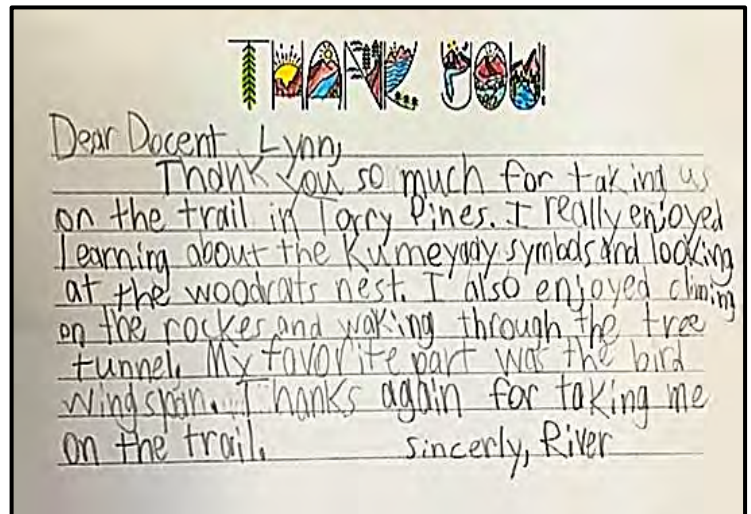 THANK YOU!
Dear Docent Lynn,
Thank you so much for taking us
on the trail in Torry Pines. I really enjoyed
Learning about the Kumeyaay symbols and looking
at the woodrats nest. I also enjoyed climing
on the rockes and waking through the tree
tunnel. My favorite part was the bird
wingspan. Thanks again for taking me
on the trail. Sincerly, River